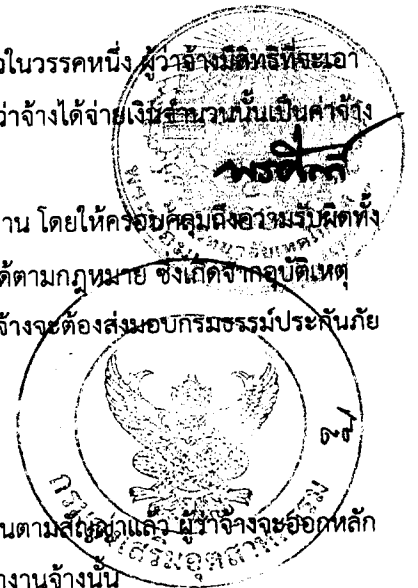 ในวรรคหนึ่ง ผู้ว่าจ้างมีสิทธิที่จะเอา
ว่าจ้างได้จ่ายเงินจำนวนนั้นเป็นค่าจ้าง
าน โดยให้ครอบคลุมถึงความรับผิดทั้ง
ด้ตามกฎหมาย ซึ่งเกิดจากอุบัติเหตุ
จ้างจะต้องส่งมอบกรมธรรม์ประกันภัย
กรมส่งเสริมอุตสาหกรรม
นตามสัญญาแล้ว ผู้ว่าจ้างจะออกหลัก
างานจ้างนั้น